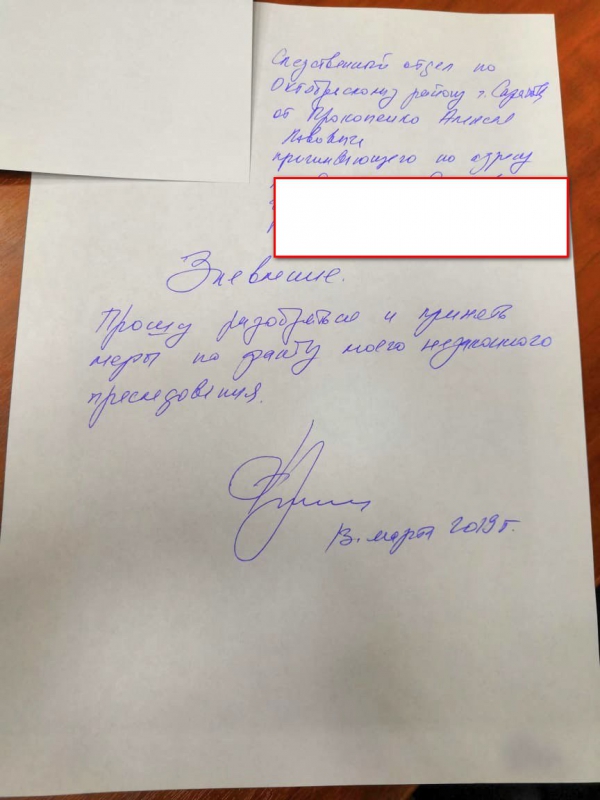 Следственный отдел по
Октябрьскому району г. Саратова
от Прокопенко Алексея
Львовича
проживающего по адресу
Заявление.
Прошу разобраться и принять
меры по факту моего незаконного
преследования.
13. марта 2019 г.